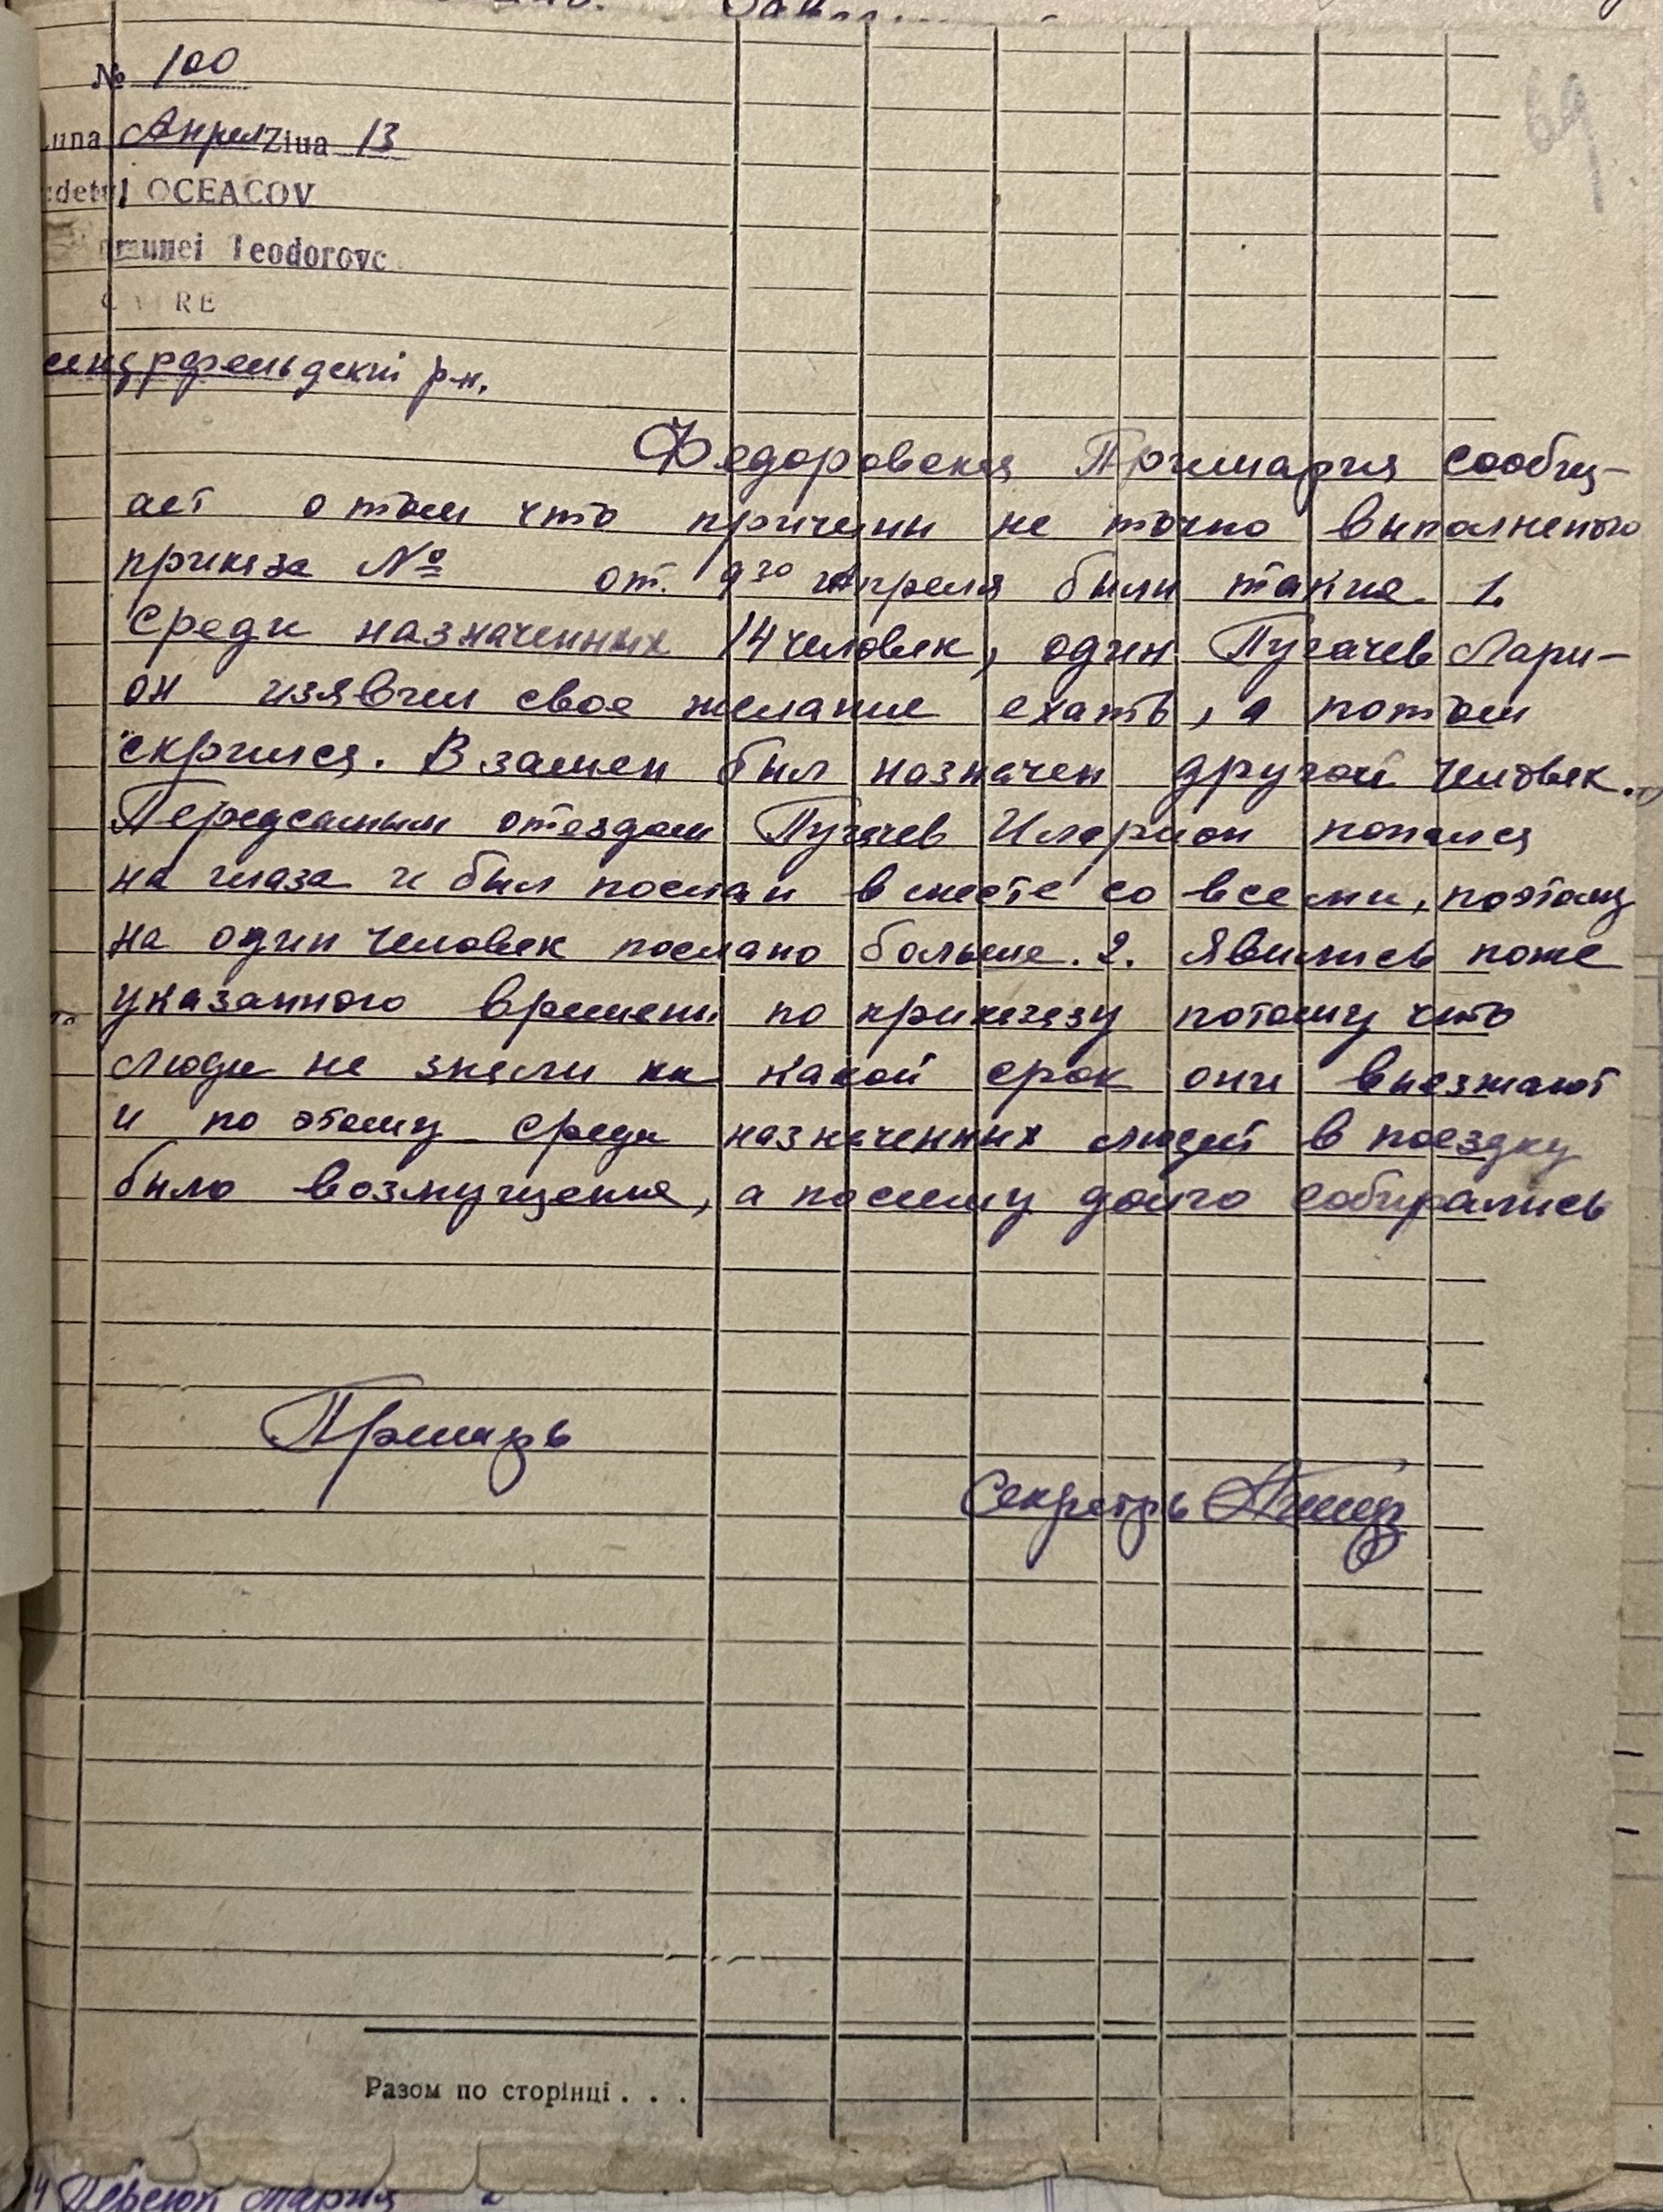 № 100
una Апрел Ziua 13
OCEACOV
Teodorovc
RE
р-н.
69
Федоровская Примария сообщ-
ает о том что причины не точно выполненого
приказа № от 9го Апреля были такие 1.
Среди назначенных 14 человек, один Пугачев Лари-
он изявил свое желание ехать, а потом
скрился. В замен был назначен другой человек.
Передсамым отездом Пугачев Иларион попался
на глаза и был послан вместе со всеми, поэтому
на один человек послано больше. 2. Явились поже
указанного времени по приказу потому что
люди не знали на какой срок они выезжают
и по этому среди назначенных людей в поездку
было возмущение, а посему долго собирались
Примарь
Секретарь
Разом по сторінці . . .